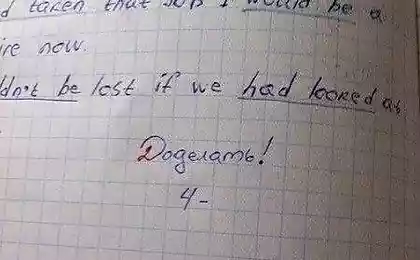 d taken that job I would be a
ire now.
ldn't be lost if we had looked at
Доделать!
4-